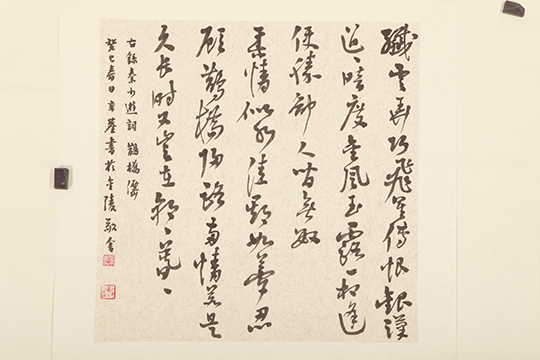 纖雲弄巧飛星傳恨銀漢
迢〻暗度金風玉露一相逢
便勝却人間無數
柔情似水佳期如夢忍
顧鵲橋歸路兩情若是
久長時又豈在朝〻暮〻
右錄秦少遊詞鵲橋僊
癸巳春日書於金陵